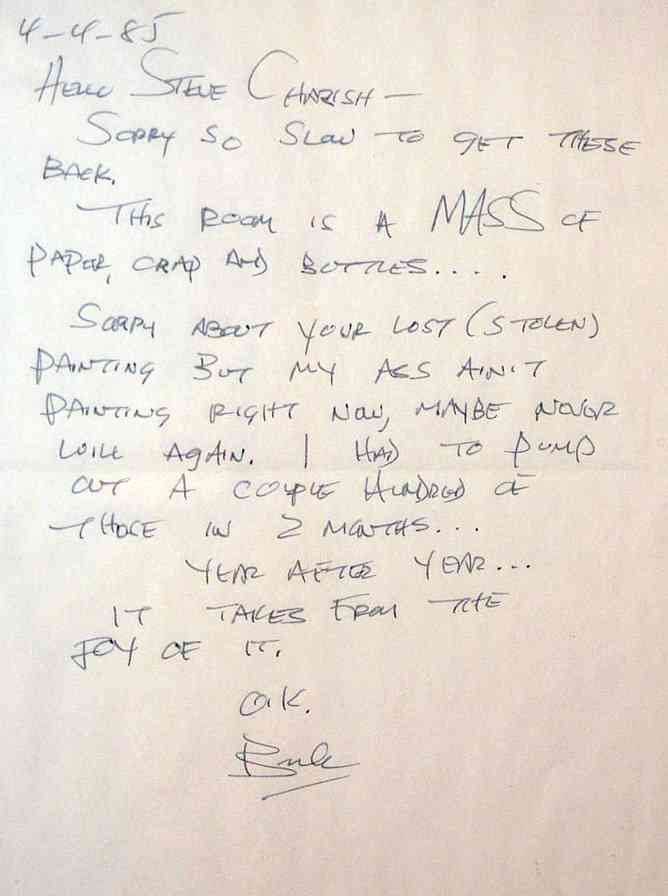 4-4-85
Hello Steve Charish —
Sorry so slow to get these
back.
This room is a MASS of
paper, crap and bottles....
Sorry about your lost (stolen)
painting but my ass ain't
painting right now, maybe never
will again. I had to pump
out a couple hundred of
those in 2 months...
year after year...
it takes from the
joy of it.
O.K.
Buk